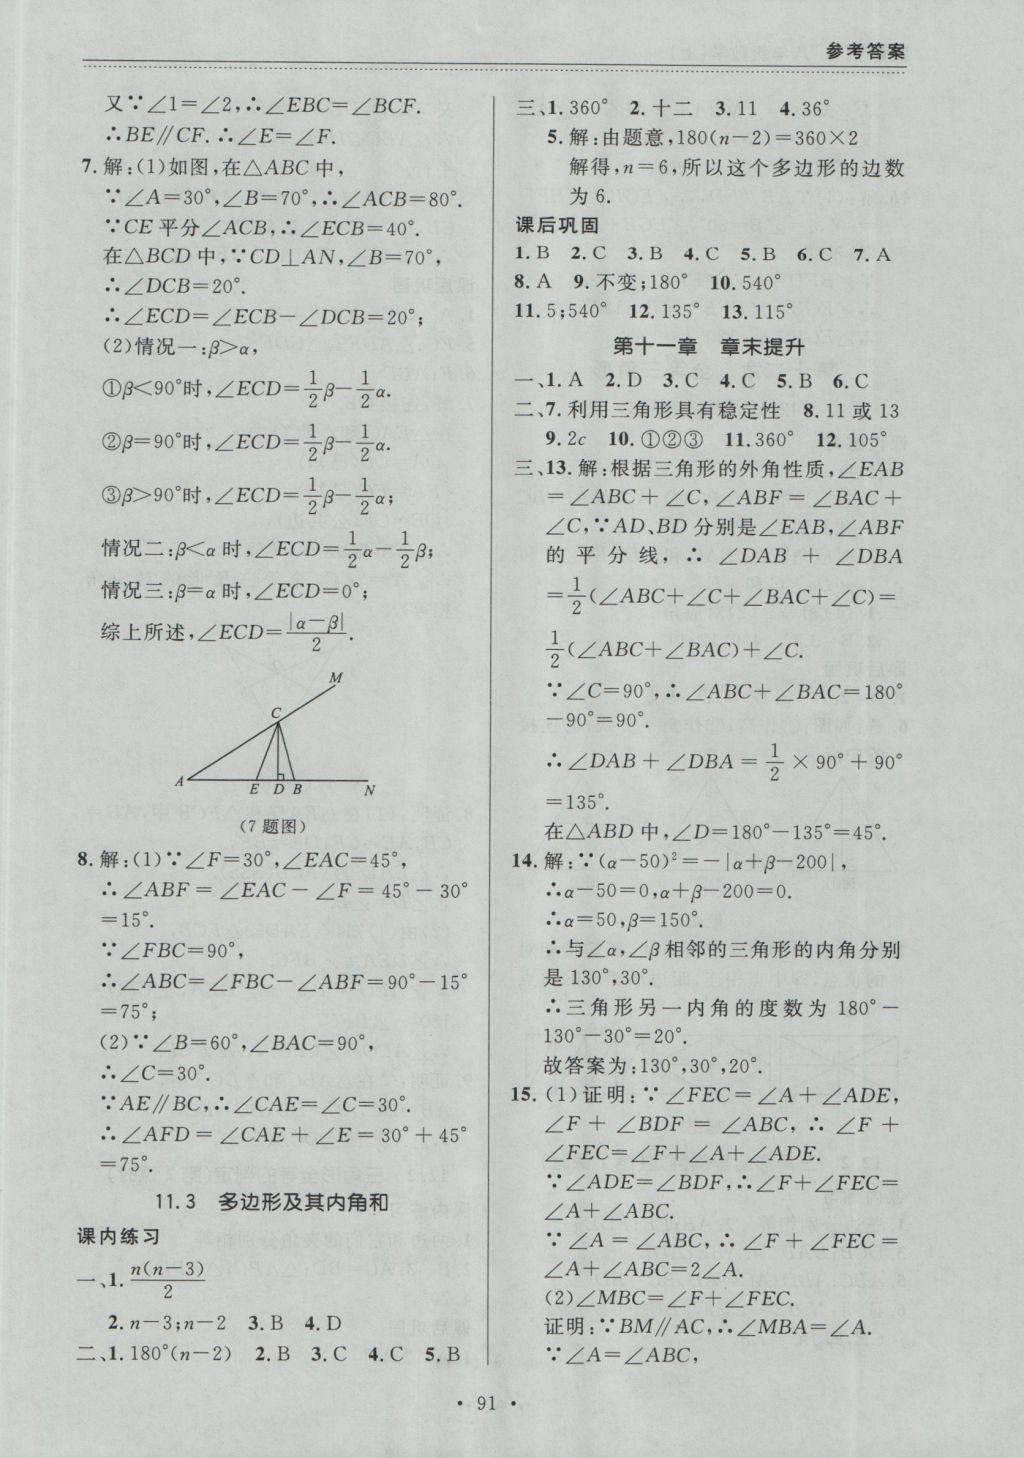 参考答案
又∵∠1=∠2,∴∠EBC=∠BCF.
∴BE∥CF.∴∠E=∠F.
7.解:(1)如图,在△ABC中,
∵∠A=30°,∠B=70°,∴∠ACB=80°.
∵CE平分∠ACB,∴∠ECB=40°.
在△BCD中,∵CD⊥AN,∠B=70°,
∴∠DCB=20°.
∴∠ECD=∠ECB-∠DCB=20°;
(2)情况一:β>α,
①β<90°时,∠ECD=1/2β-1/2α.
②β=90°时,∠ECD=1/2β-1/2α.
③β>90°时,∠ECD=1/2β-1/2α;
情况二:β<α时,∠ECD=1/2α-1/2β;
情况三:β=α时,∠ECD=0°;
综上所述,∠ECD=|α-β|/2.
M
C
A E D B N
(7题图)
8.解:(1)∵∠F=30°,∠EAC=45°,
∴∠ABF=∠EAC-∠F=45°-30°
=15°.
∵∠FBC=90°,
∴∠ABC=∠FBC-∠ABF=90°-15°
=75°;
(2)∵∠B=60°,∠BAC=90°,
∴∠C=30°.
∵AE∥BC,∴∠CAE=∠C=30°.
∴∠AFD=∠CAE+∠E=30°+45°
=75°.
11.3 多边形及其内角和
课内练习
一、1.n(n-3)/2
2.n-3;n-2 3.B 4.D
二、1.180°(n-2) 2.B 3.C 4.C 5.B
三、1.360° 2.十二 3.11 4.36°
5.解:由题意,180(n-2)=360×2
解得,n=6,所以这个多边形的边数
为6.
课后巩固
1.B 2.C 3.B 4.C 5.B 6.C 7.A
8.A 9.不变;180° 10.540°
11.5;540° 12.135° 13.115°
第十一章 章末提升
一、1.A 2.D 3.C 4.C 5.B 6.C
二、7.利用三角形具有稳定性 8.11或13
9.2c 10.①②③ 11.360° 12.105°
三、13.解:根据三角形的外角性质,∠EAB
=∠ABC+∠C,∠ABF=∠BAC+
∠C,∵AD、BD分别是∠EAB,∠ABF
的平分线,∴∠DAB+∠DBA
=1/2(∠ABC+∠C+∠BAC+∠C)=
1/2(∠ABC+∠BAC)+∠C.
∵∠C=90°,∴∠ABC+∠BAC=180°
-90°=90°.
∴∠DAB+∠DBA=1/2×90°+90°
=135°.
在△ABD中,∠D=180°-135°=45°.
14.解:∵(α-50)²=-|α+β-200|,
∴α-50=0,α+β-200=0.
∴α=50,β=150°.
∴与∠α,∠β相邻的三角形的内角分别
是130°,30°.
∴三角形另一内角的度数为180°-
130°-30°=20°.
故答案为:130°,30°,20°.
15.(1)证明:∵∠FEC=∠A+∠ADE,
∠F+∠BDF=∠ABC,∴∠F+
∠FEC=∠F+∠A+∠ADE.
∵∠ADE=∠BDF,∴∠F+∠FEC=
∠A+∠ABC.
∵∠A=∠ABC,∴∠F+∠FEC=
∠A+∠ABC=2∠A.
(2)∠MBC=∠F+∠FEC.
证明:∵BM∥AC,∴∠MBA=∠A.
∵∠A=∠ABC,
• 91 •